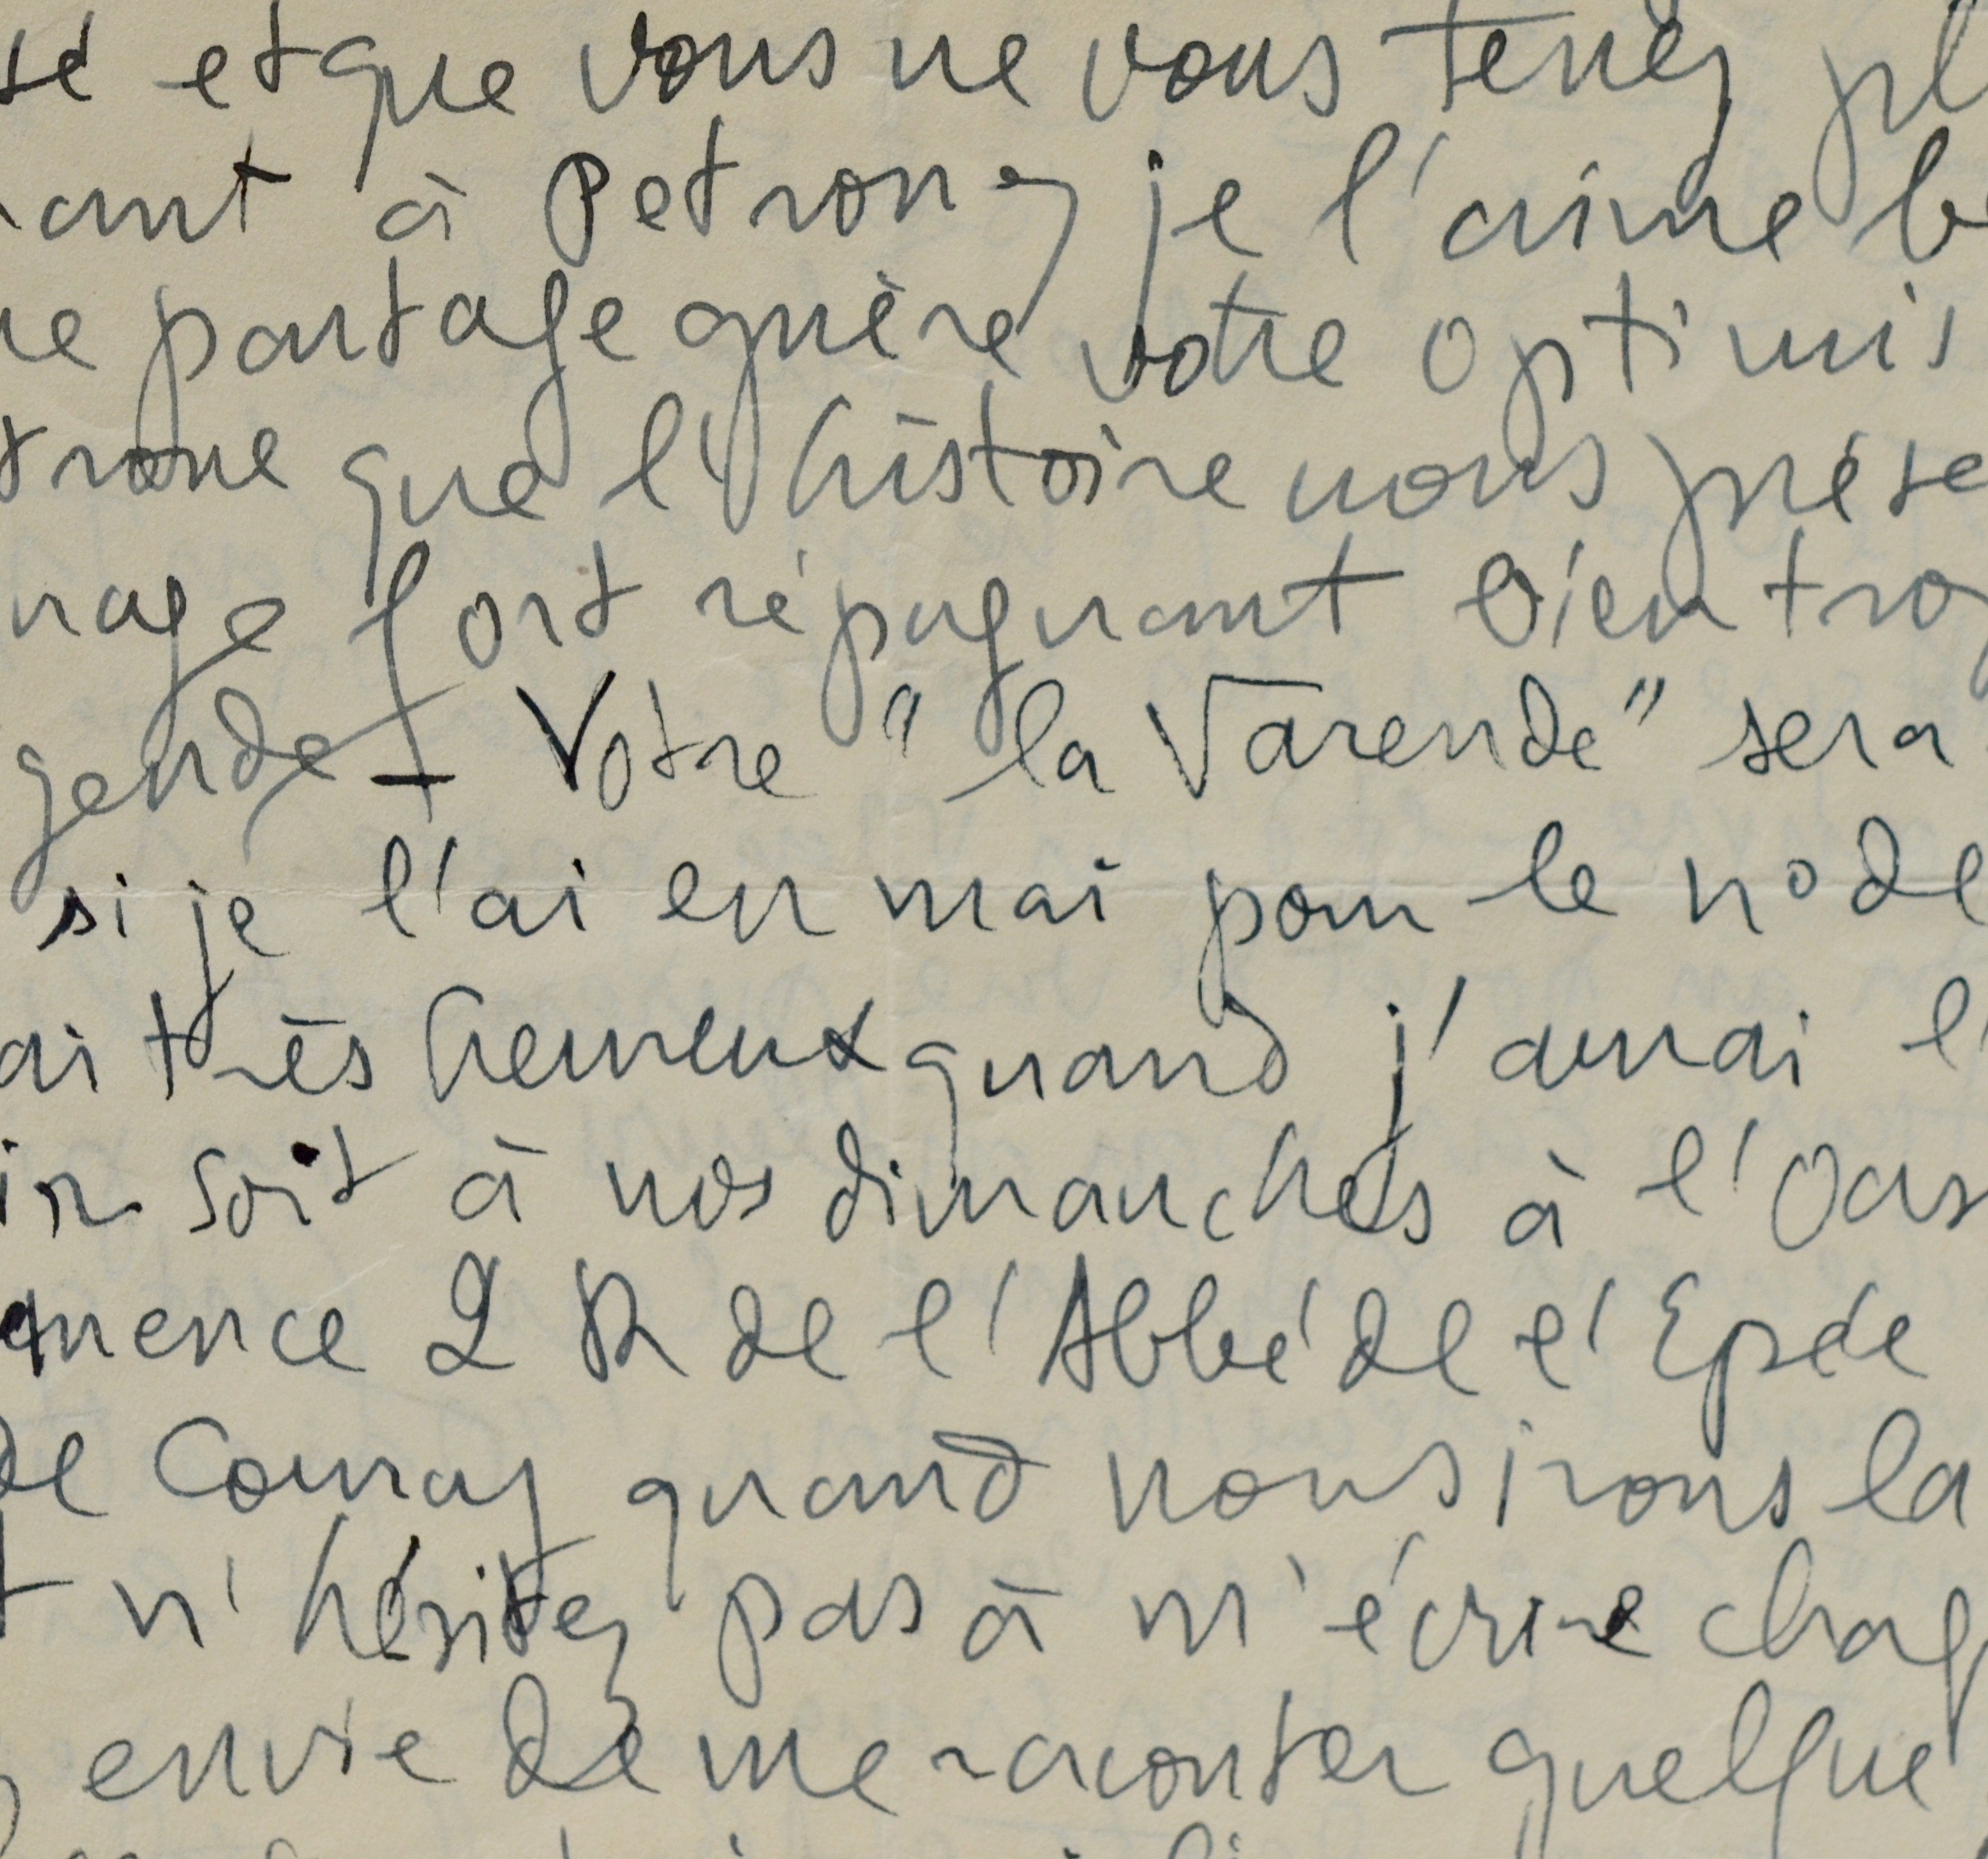 sé et que vous ne vous tenez pl
ant à Petrone, je l'aime b
ne partage guère votre optimis
trone que l'histoire nous prése
nage fort répugnant bien tro
gende - Votre "la Varende" sera
si je l'ai en mai pour le no de
ai très heureux quand j'aurai l'
ir soit à nos dimanches à l'Oas
mence 2 R de l'Abbé de l'Epée
de Couray quand nous irons la
t n'hésitez pas à m'écrire chaq
envie de me raconter quelque